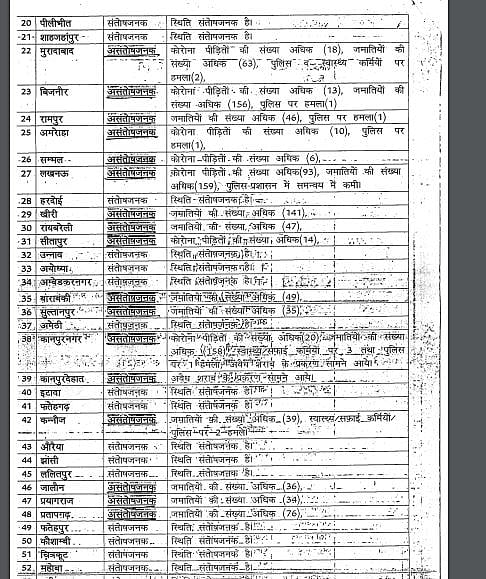 20 पीलीभीत संतोषजनक स्थिति संतोषजनक है।
-21- शाहजहांपुर संतोषजनक स्थिति संतोषजनक है।
22 मुरादाबाद असंतोषजनक कोरोना पीड़ितों की संख्या अधिक (18), जमातियों की
संख्या अधिक (63), पुलिस व स्वास्थ्य कर्मियों पर
हमला(2),
23 बिजनौर असंतोषजनक कोरोना पीड़ितों की संख्या अधिक (13), जमातियों की
संख्या अधिक (156), पुलिस पर हमला(1)
24 रामपुर असंतोषजनक जमातियों की संख्या अधिक (46), पुलिस पर हमला(1)
25 अमरोहा असंतोषजनक कोरोना पीड़ितों की संख्या अधिक (10), पुलिस पर
हमला(1),
26 सम्भल असंतोषजनक कोरोना पीड़ितों की संख्या अधिक (6),
27 लखनऊ असंतोषजनक कोरोना पीड़ितों की संख्या अधिक(93), जमातियों की संख्या
अधिक(159), पुलिस-प्रशासन में समन्वय में कमी।
28 हरदोई संतोषजनक स्थिति संतोषजनक है।
29 खीरी असंतोषजनक जमातियों की संख्या अधिक (141),
30 रायबरेली असंतोषजनक जमातियों की संख्या अधिक (47),
31 सीतापुर असंतोषजनक कोरोना पीड़ितों की संख्या अधिक(14),
32 उन्नाव संतोषजनक स्थिति संतोषजनक है।
33 अयोध्या संतोषजनक स्थिति संतोषजनक है।
34 अम्बेडकरनगर संतोषजनक स्थिति संतोषजनक है।
35 बाराबंकी असंतोषजनक जमातियों की संख्या अधिक (49),
36 सुल्तानपुर असंतोषजनक जमातियों की संख्या अधिक (35),
37 अमेठी संतोषजनक स्थिति संतोषजनक है।
38 कानपुरनगर असंतोषजनक कोरोना पीड़ितों की संख्या अधिक(20), जमातियों की संख्या
अधिक (158), स्वास्थ्य/सफाई कर्मियों पर 3 तथा पुलिस
पर 1 हमला, अवैध शराब के प्रकरण सामने आये।
39 कानपुरदेहात असंतोषजनक अवैध शराब के प्रकरण सामने आये।
40 इटावा संतोषजनक स्थिति संतोषजनक है।
41 फतेहगढ़ संतोषजनक स्थिति संतोषजनक है।
42 कन्नौज असंतोषजनक जमातियों की संख्या अधिक (39), स्वास्थ्य/सफाई कर्मियों/
पुलिस पर 2 हमले।
43 औरैया संतोषजनक स्थिति संतोषजनक है।
44 झांसी संतोषजनक स्थिति संतोषजनक है।
45 ललितपुर संतोषजनक स्थिति संतोषजनक है।
46 जालौन असंतोषजनक जमातियों की संख्या अधिक (36),
47 प्रयागराज असंतोषजनक जमातियों की संख्या अधिक (34),
48 प्रतापगढ़ असंतोषजनक जमातियों की संख्या अधिक (76),
49 फतेहपुर संतोषजनक स्थिति संतोषजनक है।
50 कौशाम्बी संतोषजनक स्थिति संतोषजनक है।
51 चित्रकूट संतोषजनक स्थिति संतोषजनक है।
52 महोबा संतोषजनक स्थिति संतोषजनक है।